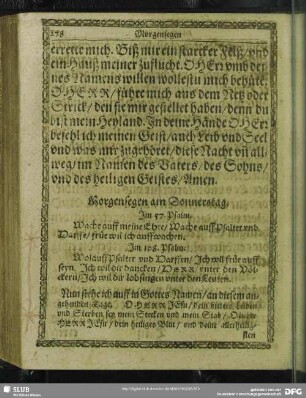 178 Morgensegen
errette mich. Biß mir ein starcker Felß/ vnd
ein Hauß meiner zuflucht. O HErr vmb dei-
nes Namens willen wollestu mich behüte.
O HERR/ führe mich aus dem Netz oder
Strick/ den sie mir gestellet haben/ denn du
bist mein Heyland. In deine Hände O HErr
befehl ich meinen Geist/ auch Leib vnd Seel
vnd was mir zugehöret/ diese Nacht vñ all-
weg/ im Namen des Vaters/ des Sohns/
vnd des heiligen Geistes/ Amen.
Morgensegen am Donnerstag.
Im 57. Psalm.
Wache auff meine Ehre/ Wache auff Psalter vnd
Harffe/ früe wil ich auffwachen.
Im 108. Psalm.
Wolauff Psalter vnd Harffen/ Ich wil früe auff
seyn. Ich wil dir dancken/ HERR/ vnter den Völ-
ckern/ Ich wil dir lobsingen vnter den Leuten.
Nun stehe ich auff in Gottes Namen/ an diesem an-
gehenden Tage. O HERR JEsu/ dein
vnd Sterben sey mein Stecken vnd mein Stab/
HERR JEsu/ dein heiliges Blut/ vnd dein allerheilig-
sten
SLUB
Wir führen Wissen.